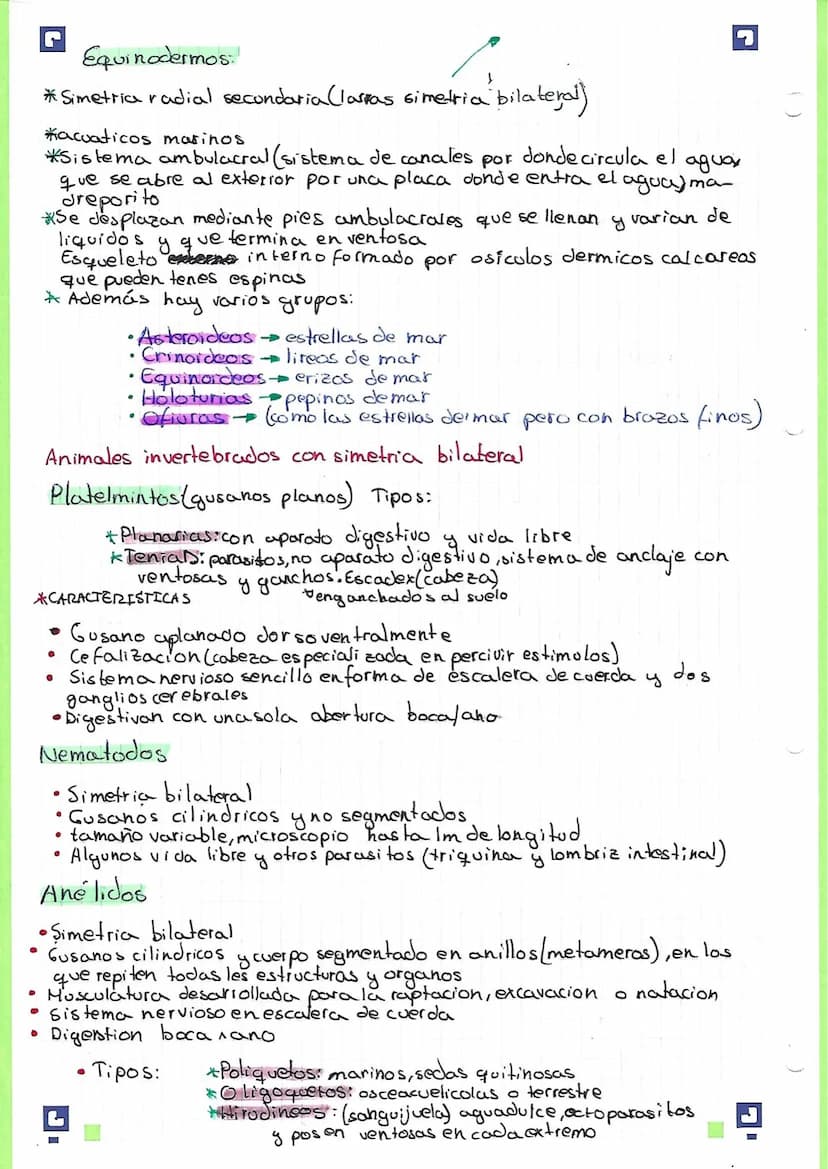 Equinodermos:
*Simetria radial secundaria (larvas simetria bilateral)
*acuaticos marinos
*Sistema ambulacral (sistema de canales por donde circula el agua,
que se abre al exterior por una placa donde entra el agua) ma-
dreporito
*Se desplazan mediante pies ambulacrales que se llenan y varian de
liquidos y que termina en ventosa
Esqueleto externo interno formado por osículos dermicos calcareos
que pueden tenes espinas
* Además hay varios grupos:
• Asteroideos → estrellas de mar
• Crinoideos → lireos de mar
• Equinoideos → erizos de mar
• Holoturias → pepinos de mar
• Ofiuras → (como las estrellas de mar pero con brazos finos)
Animales invertebrados con simetria bilateral
Platelmintos (gusanos planos) Tipos:
*Planarias: con aparato digestivo y vida libre
*Tenias: parasitos, no aparato digestivo, sistema de anclaje con
ventosas y ganchos. Escadex (cabeza)
enganchados al suelo
*CARACTERÍSTICAS
• Gusano aplanado dorsoventralmente
• Cefalizacion (cabeza especializada en percivir estimulos)
• Sistema nervioso sencillo en forma de escalera de cuerda y dos
ganglios cerebrales
• Digestivan con una sola abertura boca/ano
Nematodos
• Simetria bilateral
• Gusanos cilindricos y no segmentados
• tamaño variable, microscopio hasta 1m de longitud
• Algunos vida libre y otros parasitos (triquina y lombriz intestinal)
Anélidos
• Simetria bilateral
• Gusanos cilindricos y cuerpo segmentado en anillos (metameros), en los
que repiten todas les estructuras y organos
• Musculatura desarrollada para la raptacion, excavacion o natacion
• sistema nervioso en escalera de cuerda
• Digestion boca ano
• Tipos:
*Poliquetos: marinos, sedas quitinosas
*Oligoquetos: osceacuelicolas o terrestre
*Hirodineos: (sanguijuela) aguadulce, ectoparasitos
y posen ventosas en cada extremo